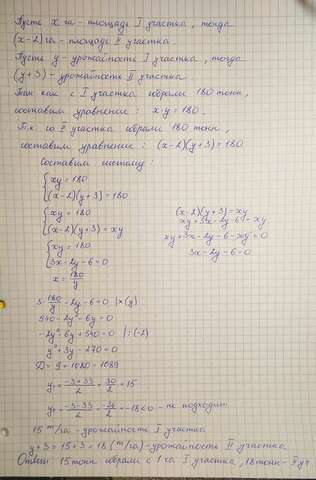 Пусть x га - площадь I участка, тогда
(x-2) га - площадь II участка.
Пусть y - урожайность I участка, тогда
(y+3) - урожайность II участка
Так как с I участка собрали 180 тонн,
составим уравнение: x·y=180.
Т.к со II участка собрали 180 тонн,
составим уравнение: (x-2)(y+3)=180
Составим систему:
{xy=180
(x-2)(y+3)=180
{xy=180
(x-2)(y+3)=xy
(x-2)(y+3)=xy
xy+3x-2y-6=xy
xy+3x-2y-6-xy=0
3x-2y-6=0
{xy=180
3x-2y-6=0
x=180/y
3·180/y-2y-6=0 |×(y)
540-2y²-6y=0
-2y²-6y+540=0 |:(-2)
y²+3y-270=0
D=9+1080=1089
y₁=(-3+33)/2=30/2=15
y₂=(-3-33)/2=-36/2=-18<0 - не подходит
15 т/га - урожайность I участка
y+3=15+3=18 (т/га)-урожайность II участка
Ответ: 15 тонн собрали с 1 га I участка, 18 тонн - II уч